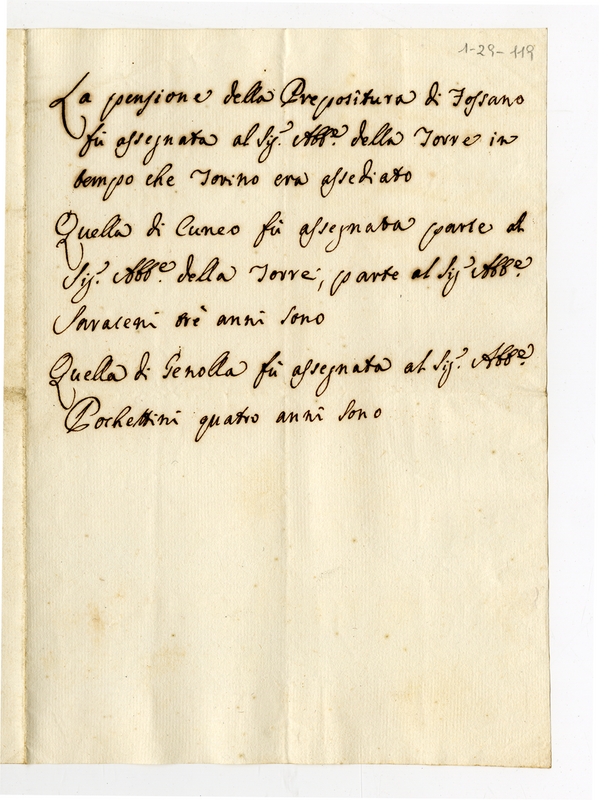 1-29-119
La pensione della Prepositura di Fossano
fù assegnata al Sig.r Abb.e della Torre in
tempo che Torino era assediato
Quella di Cuneo fù assegnata parte al
Sig.r Abb.e della Torre, parte al Sig.r Abb.e
Saraceni trè anni sono
Quella di Genolla fù assegnata al Sig.r Abb.e
Pochettini quatro anni sono